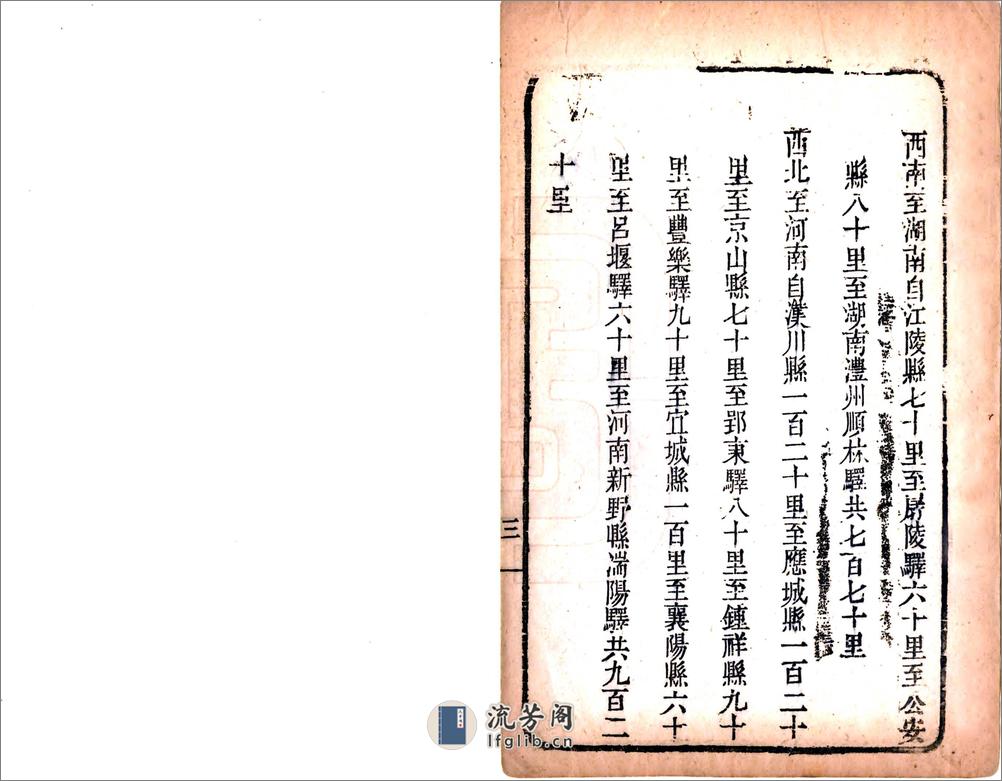 西南至湖南自江陵縣七十里至孱陵驛六十里至公安
縣八十里至湖南澧州順林驛共七百七十里
西北至河南自漢川縣一百二十里至應城縣一百二十
里至京山縣七十里至郢東驛八十里至鍾祥縣九十
里至豐樂驛九十里至宜城縣一百里至襄陽縣六十
里至呂堰驛六十里至河南新野縣湍陽驛共九百二
十里
三
流芳阁
lfglib.cn